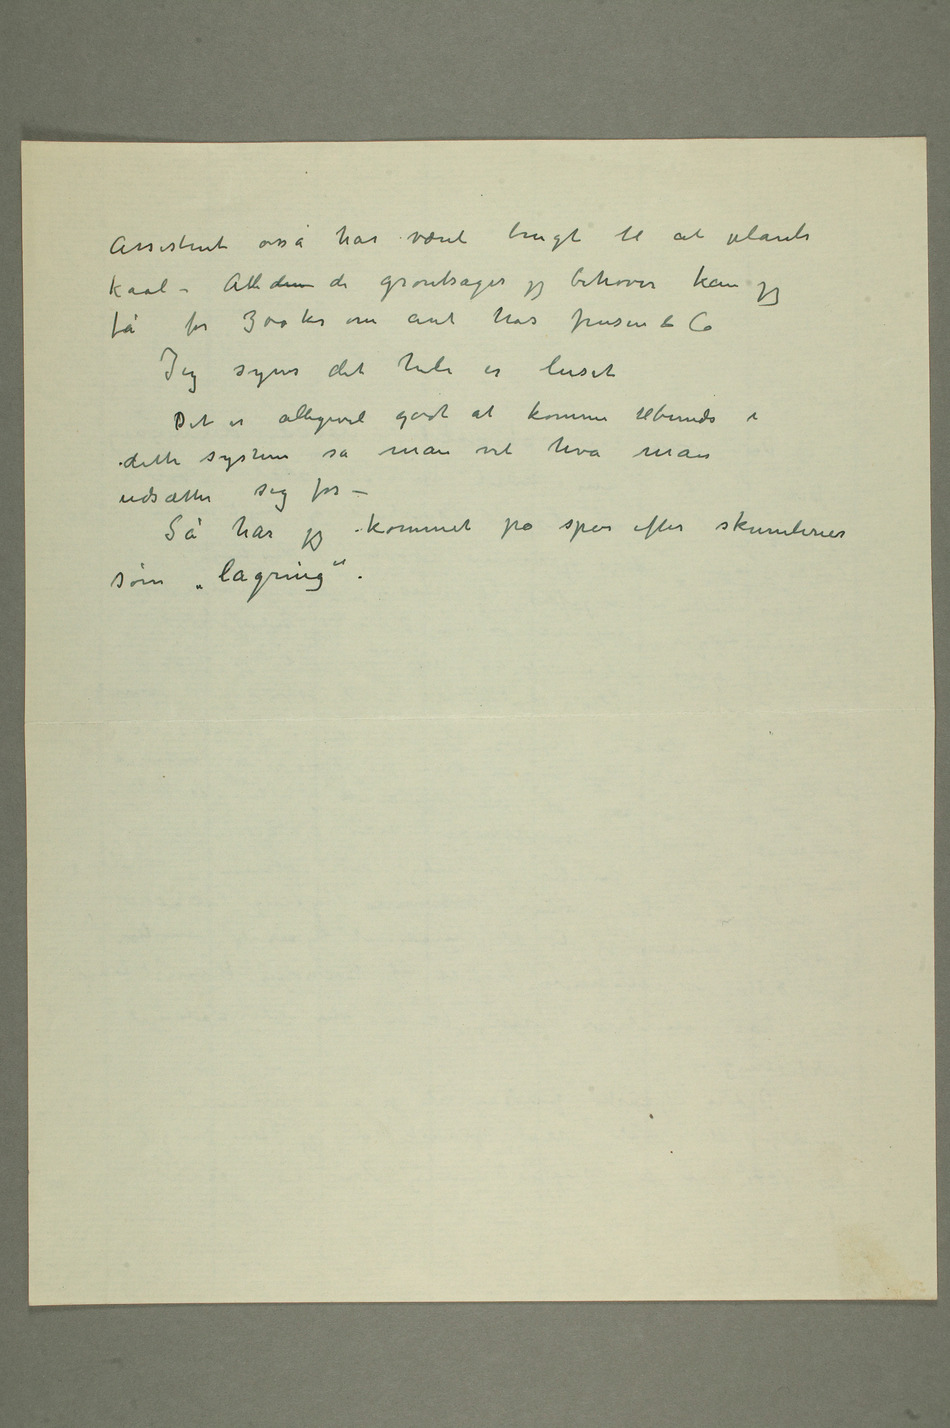 Assistent osså har været brugt til at plante
kaal – All den de grøntsager jeg behøver kan jeg
få for 300 kr om aaret hos Jensen & Co
Jeg synes det hele er luset
Det er alligevel godt at komme tilbunds i
dette system så man vet hva man
udsætter sig for –
Så har jeg kommet på spor efter skumlerier
som „lagring“.